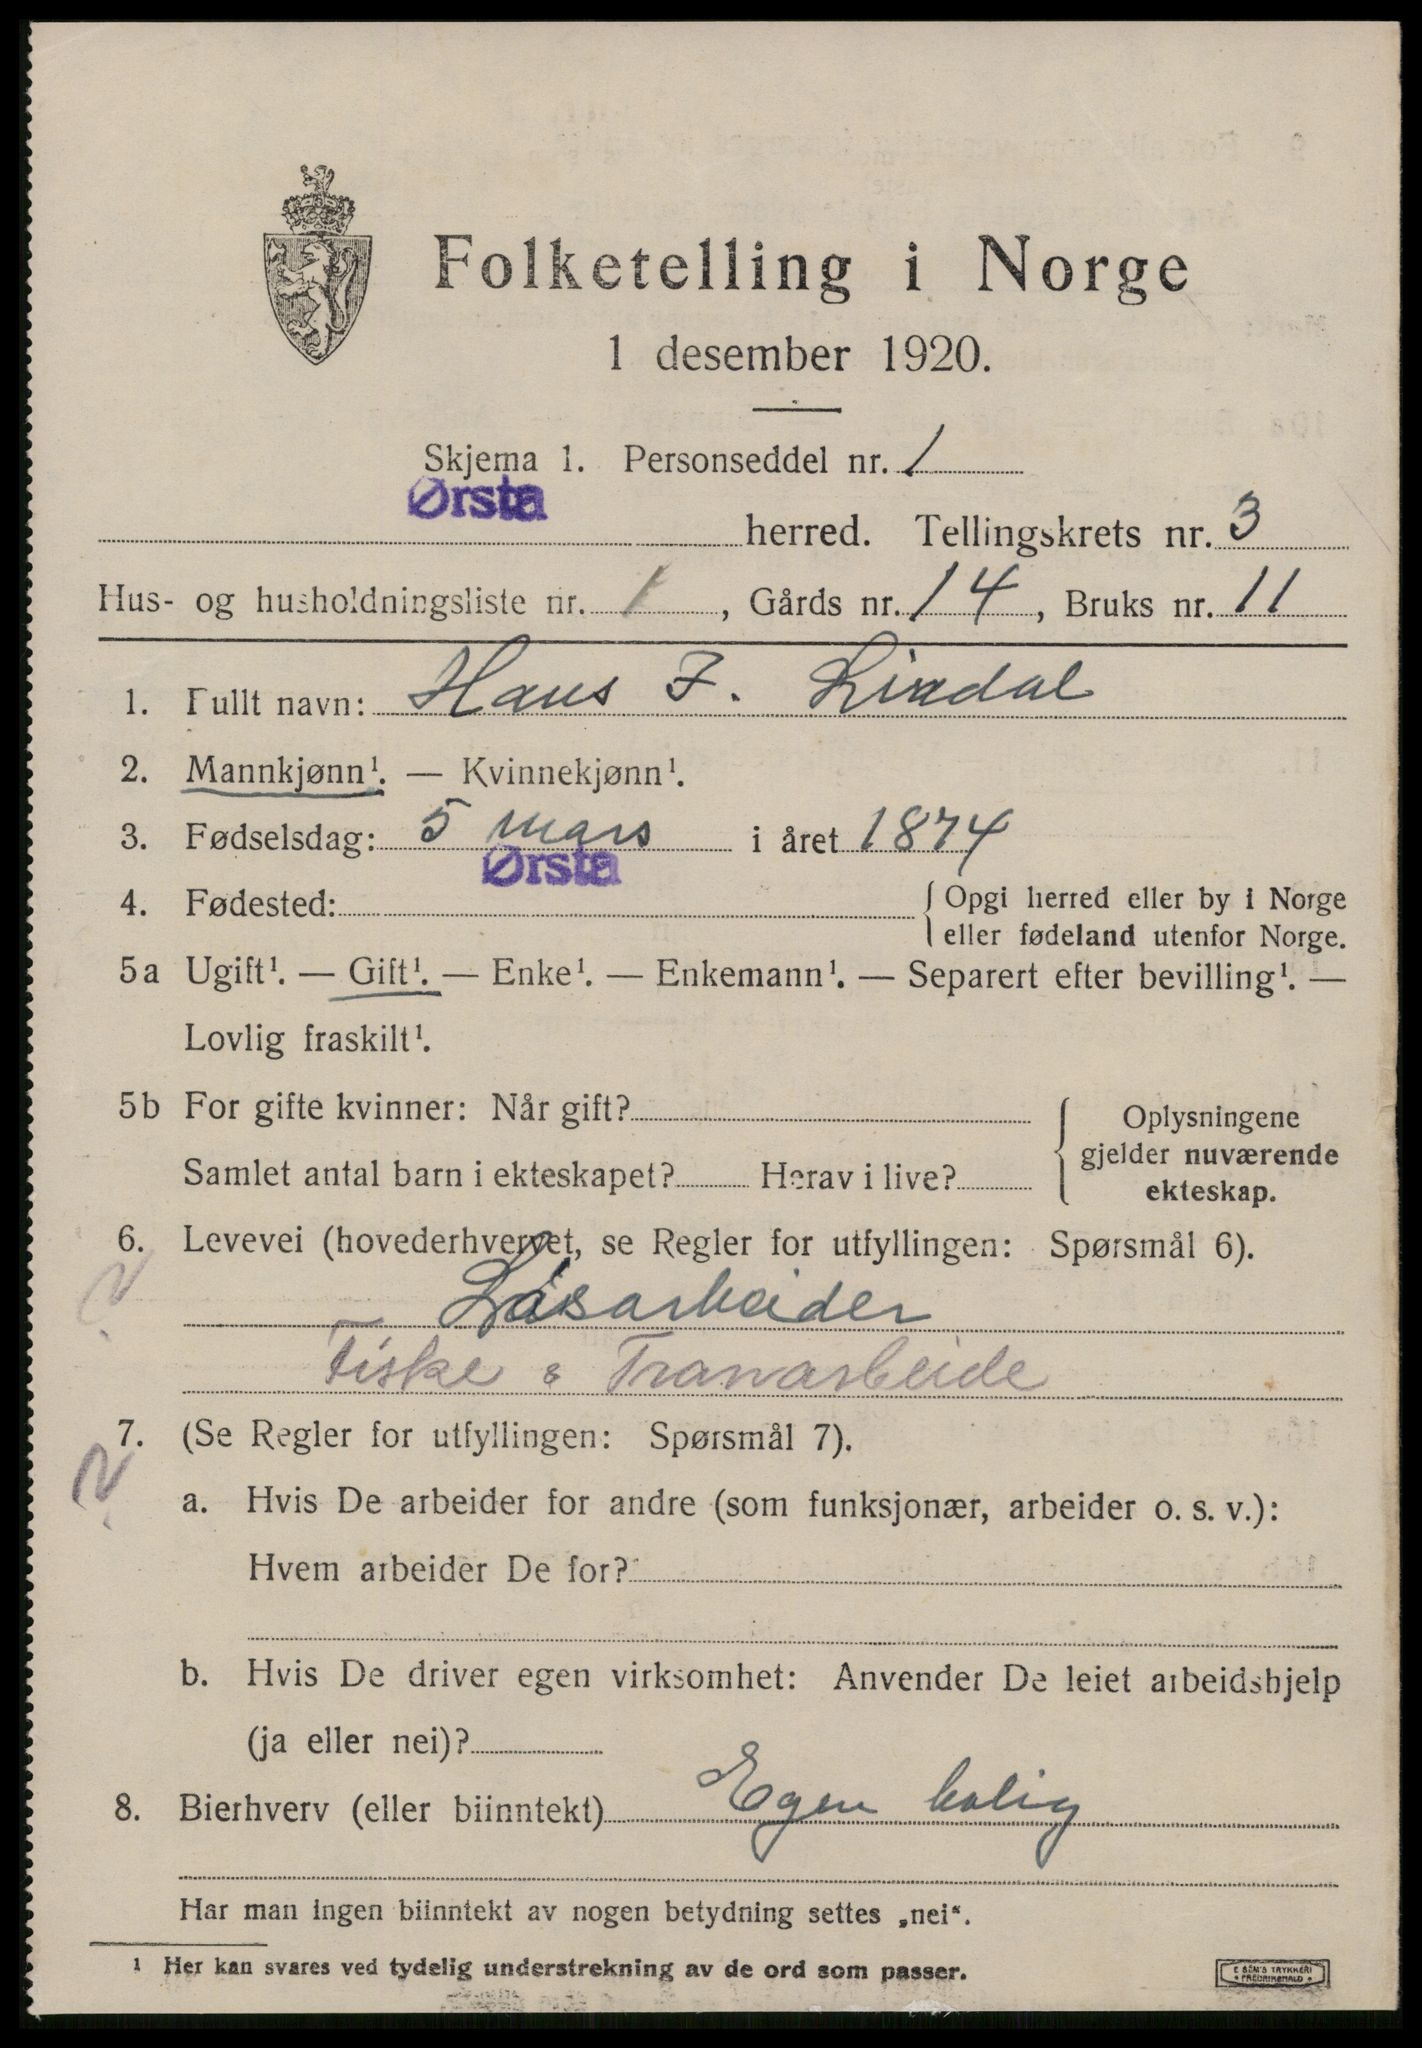 Folketelling i Norge
1 desember 1920.
Skjema 1. Personseddel nr. 1
Ørsta herred. Tellingskrets nr. 3
Hus- og husholdningsliste nr. 1, Gårds nr. 14, Bruks nr. 11
1. Fullt navn: Hans J. Lirdal
2. Mannkjønn¹. — Kvinnekjønn¹.
3. Fødselsdag: 5 mars i året 1874
4. Fødested: Ørsta { Opgi herred eller by i Norge
eller fødeland utenfor Norge.
5a Ugift¹. — Gift¹. — Enke¹. — Enkemann¹. — Separert efter bevilling¹. —
Lovlig fraskilt¹.
5b For gifte kvinner: Når gift? { Oplysningene
gjelder nuværende
Samlet antal barn i ekteskapet? Herav i live?
ekteskap.
6. Levevei (hovederhvervet, se Regler for utfyllingen: Spørsmål 6).
Løsarbeider
Fiske & Tranarbeide
7. (Se Regler for utfyllingen: Spørsmål 7).
a. Hvis De arbeider for andre (som funksjonær, arbeider o. s. v.):
Hvem arbeider De for?
b. Hvis De driver egen virksomhet: Anvender De leiet arbeidshjelp
(ja eller nei)?
8. Bierhverv (eller biinntekt) Egen bolig
Har man ingen biinntekt av nogen betydning settes „nei“.
¹ Her kan svares ved tydelig understrekning av de ord som passer.
E SEM'S TRYKKERI
FREDRIKSHALD